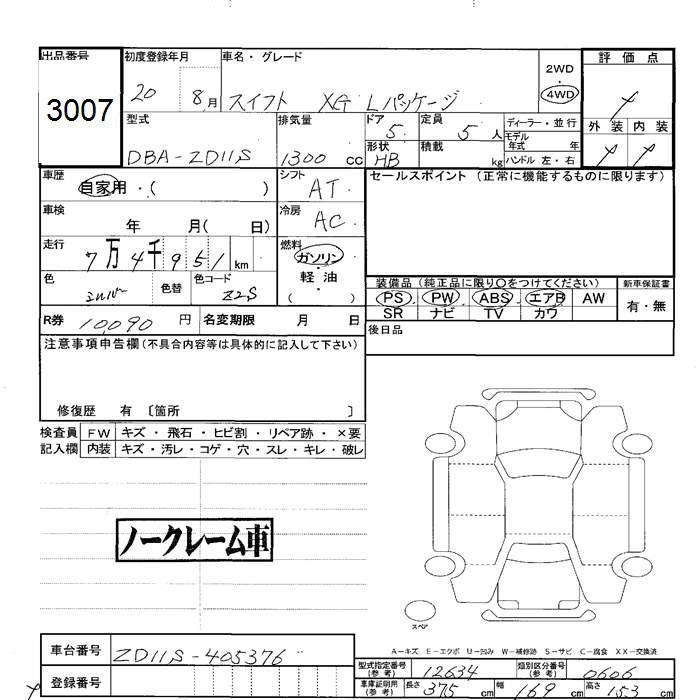 出品番号 初度登録年月 車名・グレード 2WD 評価点
3007 20 8月 スイフト XG Lパッケージ 4WD
型式 排気量 ドア 5 定員 5人 ディーラー・並行 外装 内装
モデル年式 年
DBA-ZD11S 1300cc 形状 HB 積載 kg ハンドル 左・右
車歴 自家用・( ) シフト AT セールスポイント (正常に機能するものに限ります)
車検 年 月( 日) 冷房 AC
走行 7万4千951km 燃料 ガソリン・軽油 ( )
色 シルバー 色替 色コード Z2S 装備品 (純正品に限り○をつけてください) 新車保証書
PS PW ABS エアB AW 有・無
SR ナビ TV カワ
R券 10090円 名変期限 月 日 後日品
注意事項申告欄(不具合内容等は具体的に記入して下さい)
修復歴 有 〔箇所 〕
検査員 FW キズ・飛石・ヒビ割・リペア跡・×要
記入欄 内装 キズ・汚レ・コゲ・穴・スレ・キレ・破レ
ノークレーム車
スペア
A-キズ E-エクボ U-凹み W-補修跡 S-サビ C-腐食 XX-交換済
車台番号 ZD11S-405376 型式指定番号(参考) 12634 類別区分番号(参考) 0606
登録番号 車庫証明用(参考) 長さ 375cm 幅 169cm 高さ 153cm